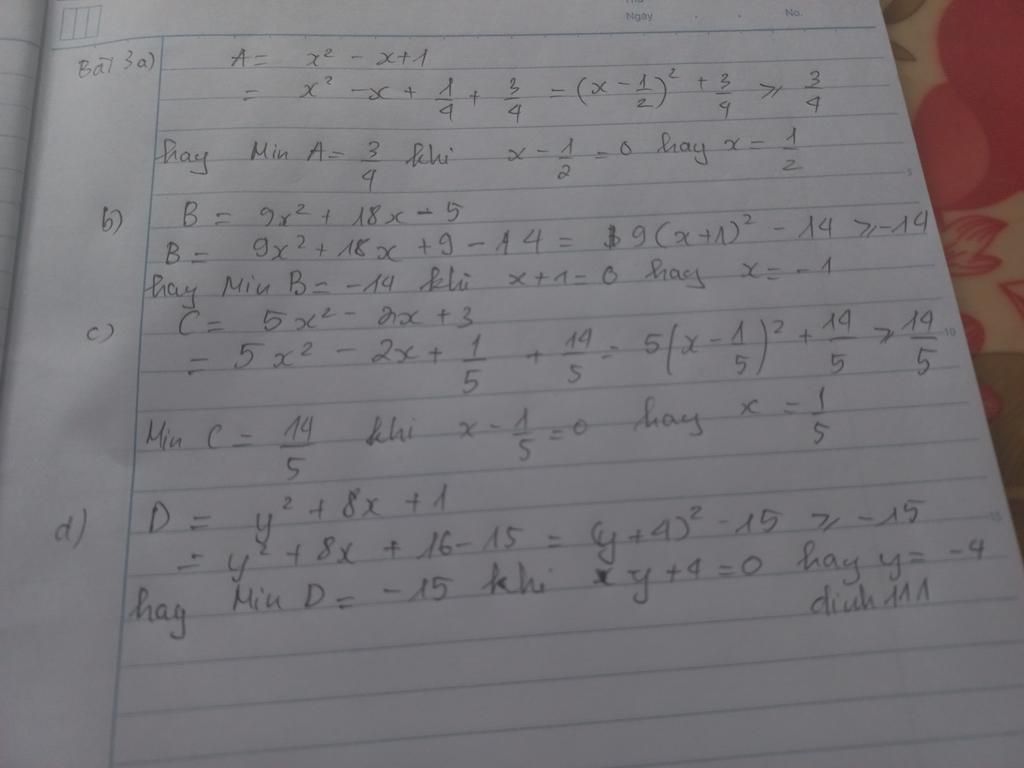 Ngày . . No.
Bài 3a) A = x² - x+1
= x² - x + 1/4 + 3/4 = (x - 1/2)² + 3/4 ⩾ 3/4
hay Min A = 3/4 khi x - 1/2 = 0 hay x = 1/2
b) B = 9x² + 18x - 5
B = 9x² + 18x + 9 - 14 = 9(x+1)² - 14 ⩾ -14
hay Min B = -14 khi x+1=0 hay x = -1
c) C = 5x² - 2x + 3
= 5x² - 2x + 1/5 + 14/5 = 5(x - 1/5)² + 14/5 ⩾ 14/5
Min C = 14/5 khi x - 1/5 = 0 hay x = 1/5
d) D = y² + 8x + 1
= y² + 8x + 16 - 15 = (y+4)² - 15 ⩾ -15
hay Min D = -15 khi y+4 = 0 hay y = -4
dinh111